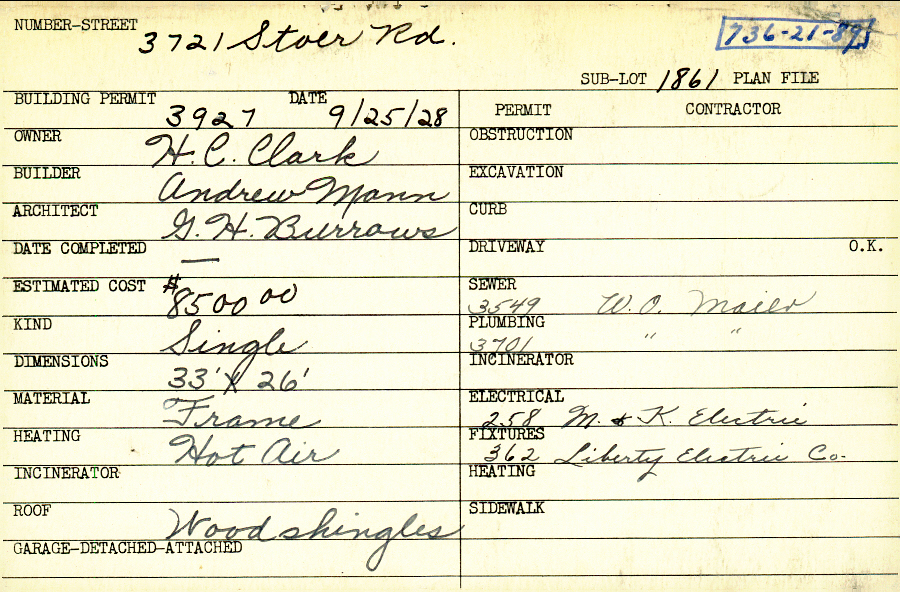 NUMBER-STREET 3721 Stoer Rd.
736-21-89
SUB-LOT 1861 PLAN FILE
BUILDING PERMIT 3927 DATE 9/25/28
OWNER H. C. Clark
BUILDER Andrew Mann
ARCHITECT G. H. Burrows
DATE COMPLETED —
ESTIMATED COST $8500 00
KIND Single
DIMENSIONS 33' X 26'
MATERIAL Frame
HEATING Hot Air
INCINERATOR
ROOF Wood shingles
GARAGE-DETACHED-ATTACHED
PERMIT CONTRACTOR
OBSTRUCTION
EXCAVATION
CURB
DRIVEWAY O.K.
SEWER 3549 W. O. Maier
PLUMBING 3701 " "
INCINERATOR
ELECTRICAL 258 M. & K. Electric
FIXTURES 362 Liberty Electric Co.
HEATING
SIDEWALK